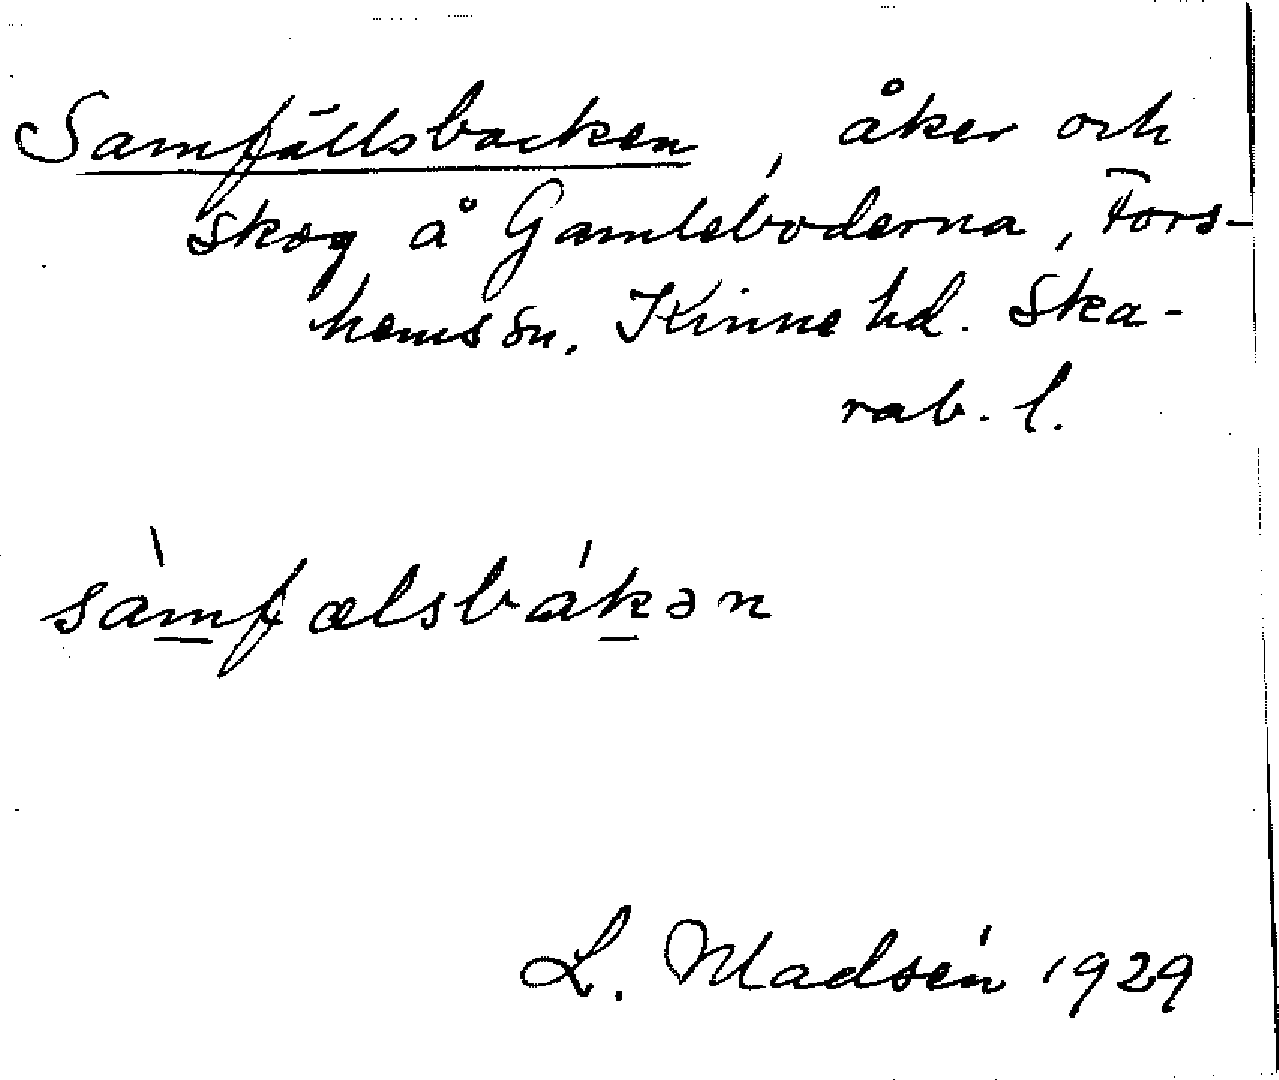 Samfällsbacken, åker och
skog å Gamleboderna, Fors-
hems sn. Kinne hd. Ska-
rab. l.
sàmfælsbákən
L. Madsén 1929